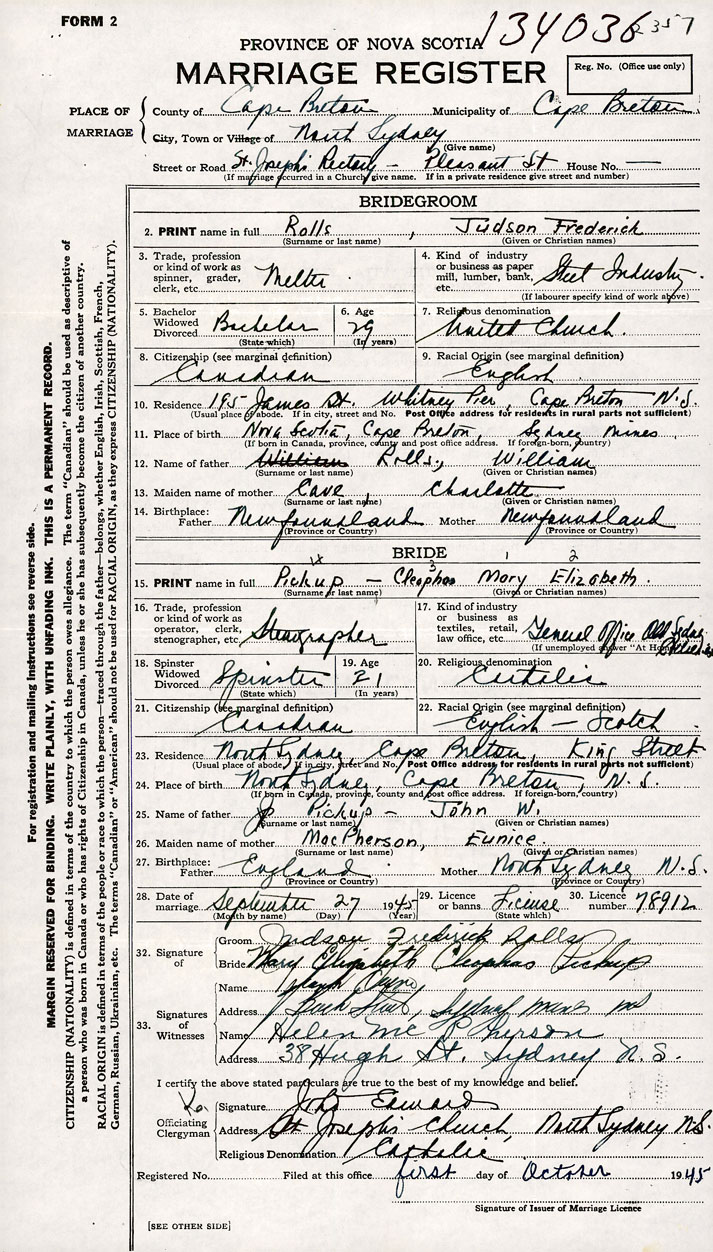 FORM 2
134036 2357
PROVINCE OF NOVA SCOTIA
MARRIAGE REGISTER
Reg. No. (Office use only)
PLACE OF MARRIAGE
County of Cape Breton Municipality of Cape Breton
City, Town or Village of North Sydney
(Give name)
Street or Road St. Joseph's Rectory – Pleasant St House No. —
(If marriage occurred in a Church give name. If in a private residence give street and number)
BRIDEGROOM
2. PRINT name in full Rolls, Judson Frederick
(Surname or last name) (Given or Christian names)
3. Trade, profession or kind of work as spinner, grader, clerk, etc. Melter
4. Kind of industry or business as paper mill, lumber, bank, etc. Steel Industry
(If labourer specify kind of work above)
5. Bachelor Widowed Divorced Bachelor
(State which)
6. Age 29
(In years)
7. Religious denomination United Church.
8. Citizenship (see marginal definition) Canadian
9. Racial Origin (see marginal definition) English
10. Residence 185 James St. Whitney Pier, Cape Breton N.S.
(Usual place of abode. If in city, street and No. Post Office address for residents in rural parts not sufficient)
11. Place of birth Nova Scotia, Cape Breton, Sydney Mines
(If born in Canada, province, county and post office address. If foreign-born, country)
12. Name of father William Rolls, William
(Surname or last name) (Given or Christian names)
13. Maiden name of mother Cave, Charlotte
(Surname or last name) (Given or Christian names)
14. Birthplace: Father Newfoundland Mother Newfoundland
(Province or Country) (Province or Country)
BRIDE
1x 3 1 2
15. PRINT name in full Pickup – Cleophas Mary Elizabeth.
(Surname or last name) (Given or Christian names)
16. Trade, profession or kind of work as operator, clerk, stenographer, etc. Stenographer
17. Kind of industry or business as textiles, retail, law office, etc. General Office Old Sydney
(If unemployed answer "At Home")
18. Spinster Widowed Divorced Spinster
(State which)
19. Age 21
(In years)
20. Religious denomination Catholic
21. Citizenship (see marginal definition) Canadian
22. Racial Origin (see marginal definition) English – Scotch
23. Residence North Sydney, Cape Breton, King Street
(Usual place of abode. If in city, street and No. Post Office address for residents in rural parts not sufficient)
24. Place of birth North Sydney, Cape Breton, N.S.
(If born in Canada, province, county and post office address. If foreign-born, country)
25. Name of father Pickup – John W.
(Surname or last name) (Given or Christian names)
26. Maiden name of mother MacPherson, Eunice.
(Surname or last name) (Given or Christian names)
27. Birthplace: Father England Mother North Sydney N.S.
(Province or Country) (Province or Country)
28. Date of marriage September 27 1945
(Month by name) (Day) (Year)
29. Licence or banns License
(State which)
30. Licence number 78912
32. Signature of
Groom Judson Frederick Rolls
Bride Mary Elizabeth Cleophas Pickup
33. Signatures of Witnesses
Name
Address Sydney Mines NS
Name Helen Mc Pherson
Address 38 Hugh St. Sydney N.S.
I certify the above stated particulars are true to the best of my knowledge and belief.
Officiating Clergyman
Signature John Edward
Address St Joseph's Church, North Sydney N.S.
Religious Denomination Catholic
Registered No. Filed at this office first day of October 1945
Signature of Issuer of Marriage Licence
[SEE OTHER SIDE]
For registration and mailing instructions see reverse side.
MARGIN RESERVED FOR BINDING. WRITE PLAINLY, WITH UNFADING INK. THIS IS A PERMANENT RECORD.
CITIZENSHIP (NATIONALITY) is defined in terms of the country to which the person owes allegiance. The term "Canadian" should be used as descriptive of
a person who was born in Canada or who has rights of Citizenship in Canada, unless he or she has subsequently become the citizen of another country.
RACIAL ORIGIN is defined in terms of the people or race to which the person—traced through the father—belongs, whether English, Irish, Scottish, French,
German, Russian, Ukrainian, etc. The terms "Canadian" or "American" should not be used for RACIAL ORIGIN, as they express CITIZENSHIP (NATIONALITY).